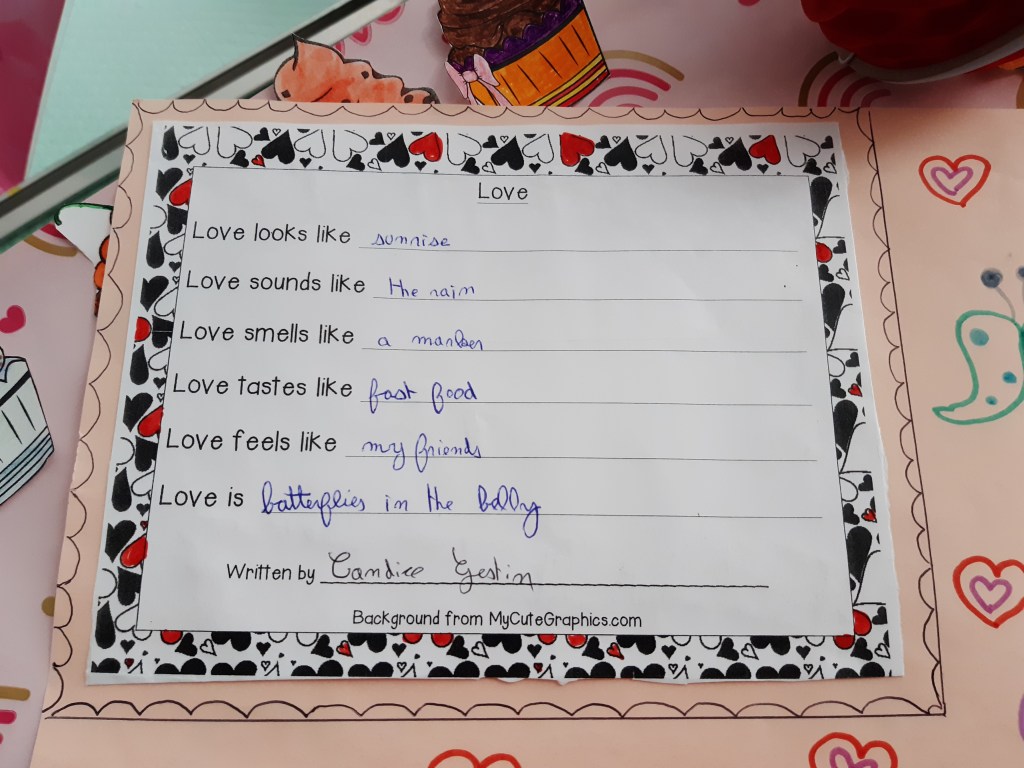 Love
Love looks like sunrise
Love sounds like the rain
Love smells like a marker
Love tastes like fast food
Love feels like my friends
Love is batterflies in the belly
Written by Candice Gestin
Background from MyCuteGraphics.com